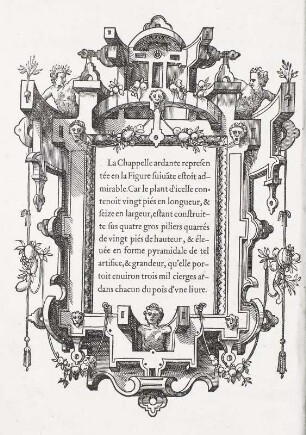 La Chappelle ardante represen
tée en la Figure suiuãte estoit ad-
mirable. Car le plant d'icelle con-
tenoit vingt piés en longueur, &
seize en largeur, estant construi-
te sus quatre gros piliers quarrés
de vingt piés de hauteur, & éle-
uée en forme pyramidale de tel
artifice, & grandeur, qu'elle por-
toit enuiron trois mil cierges ar-
dans chacun du pois d'vne liure.